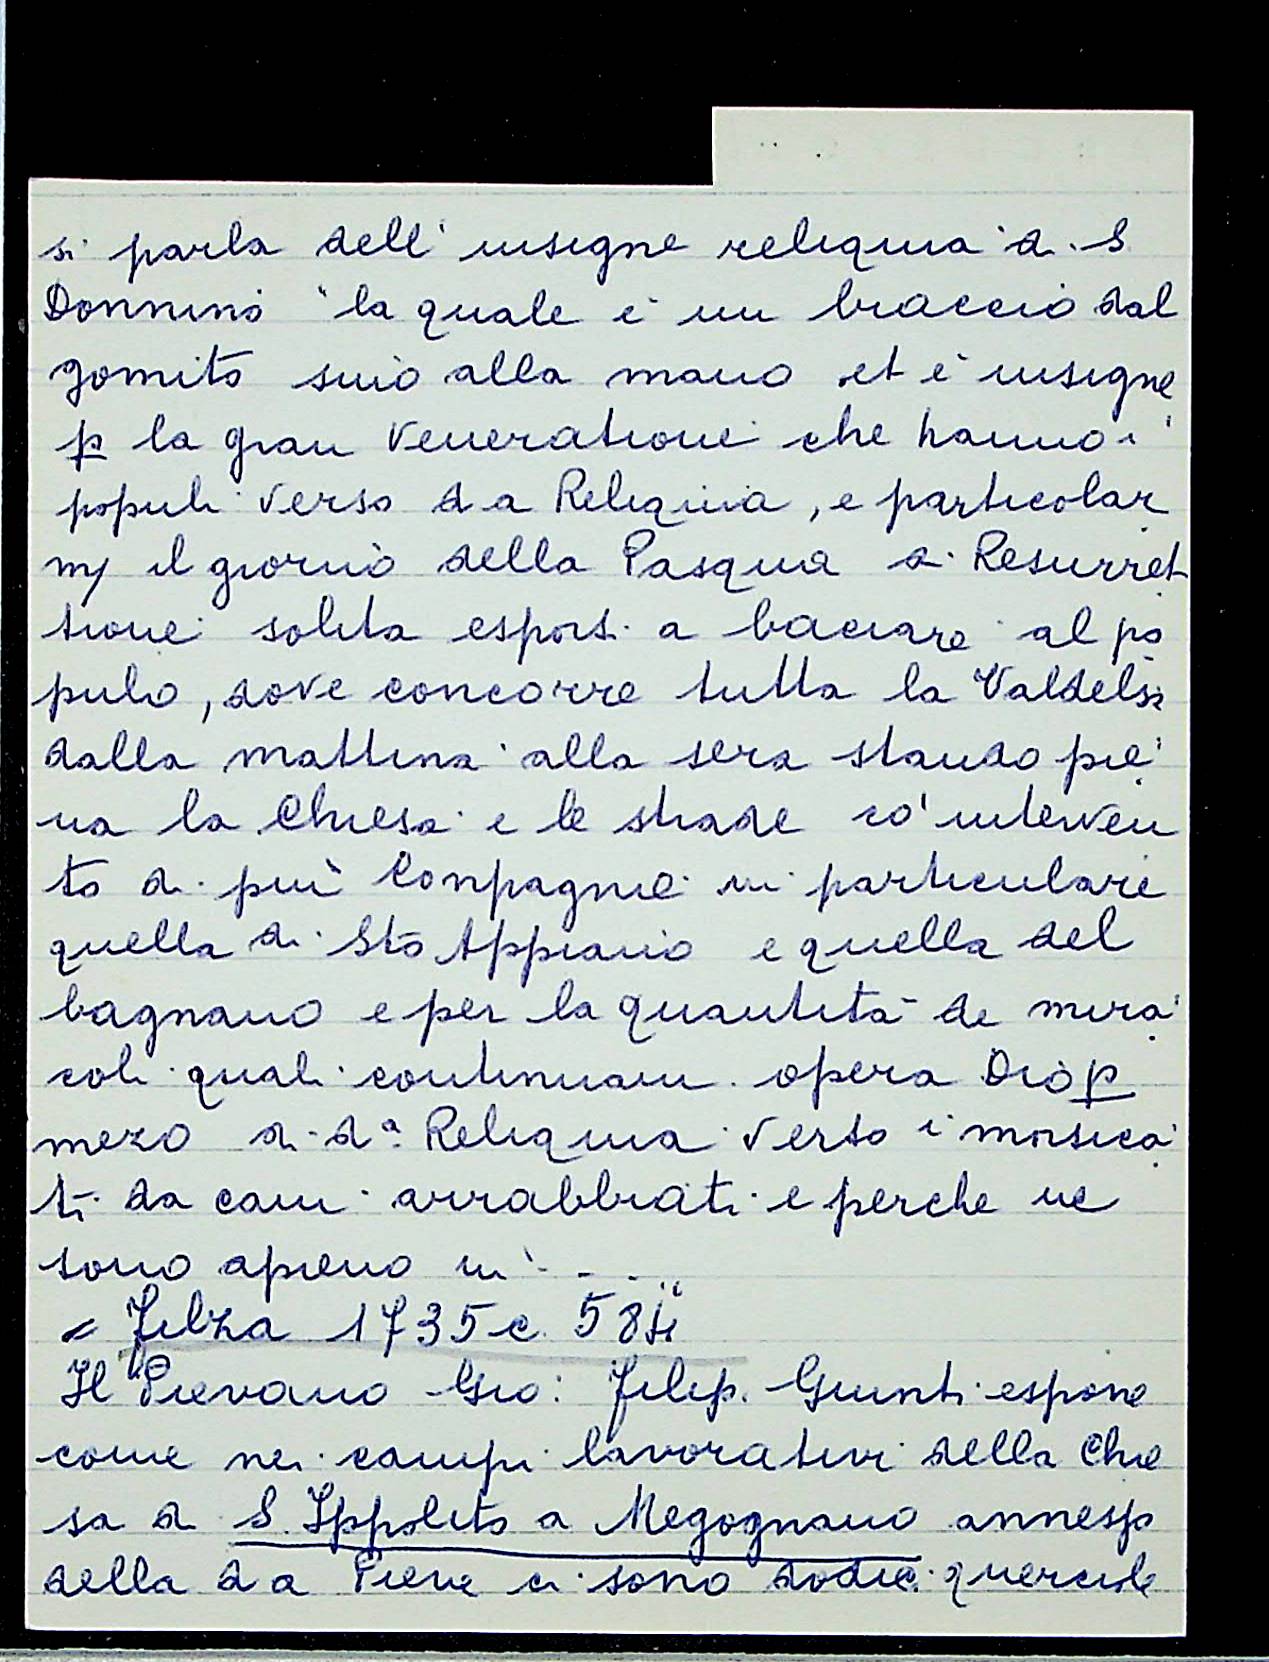 si parla dell'insigne reliquia di S.
Donnino "la quale è un braccio dal
gomito sino alla mano et è insigne
p la gran Veneratione che hanno i
populi verso da Reliquia, e particolar
il giorno della Pasqua di Resurret
tione solita esporsi a baciare al po
pulo, dove concorre tutta la Valdelsa
dalla mattina alla sera stando pie
na la Chiesa e le strade co' interven
to di più Conpagnie in particulare
quella di Sto Appiano e quella del
bagnano e per la quantità de mira
coli quali continuam. opera Dio p
mezo di da Reliquia verso i morsica
ti da cani arrabbiati e perche ne
sono apieno in - - .
= Filza 1735 c. 58
Il Pievano Gio: Filip. Giunti espone
come nei campi lavorativi della Chie
sa di S. Ippolito a Megognano annesso
della da Pieve ci sono dodici querciole